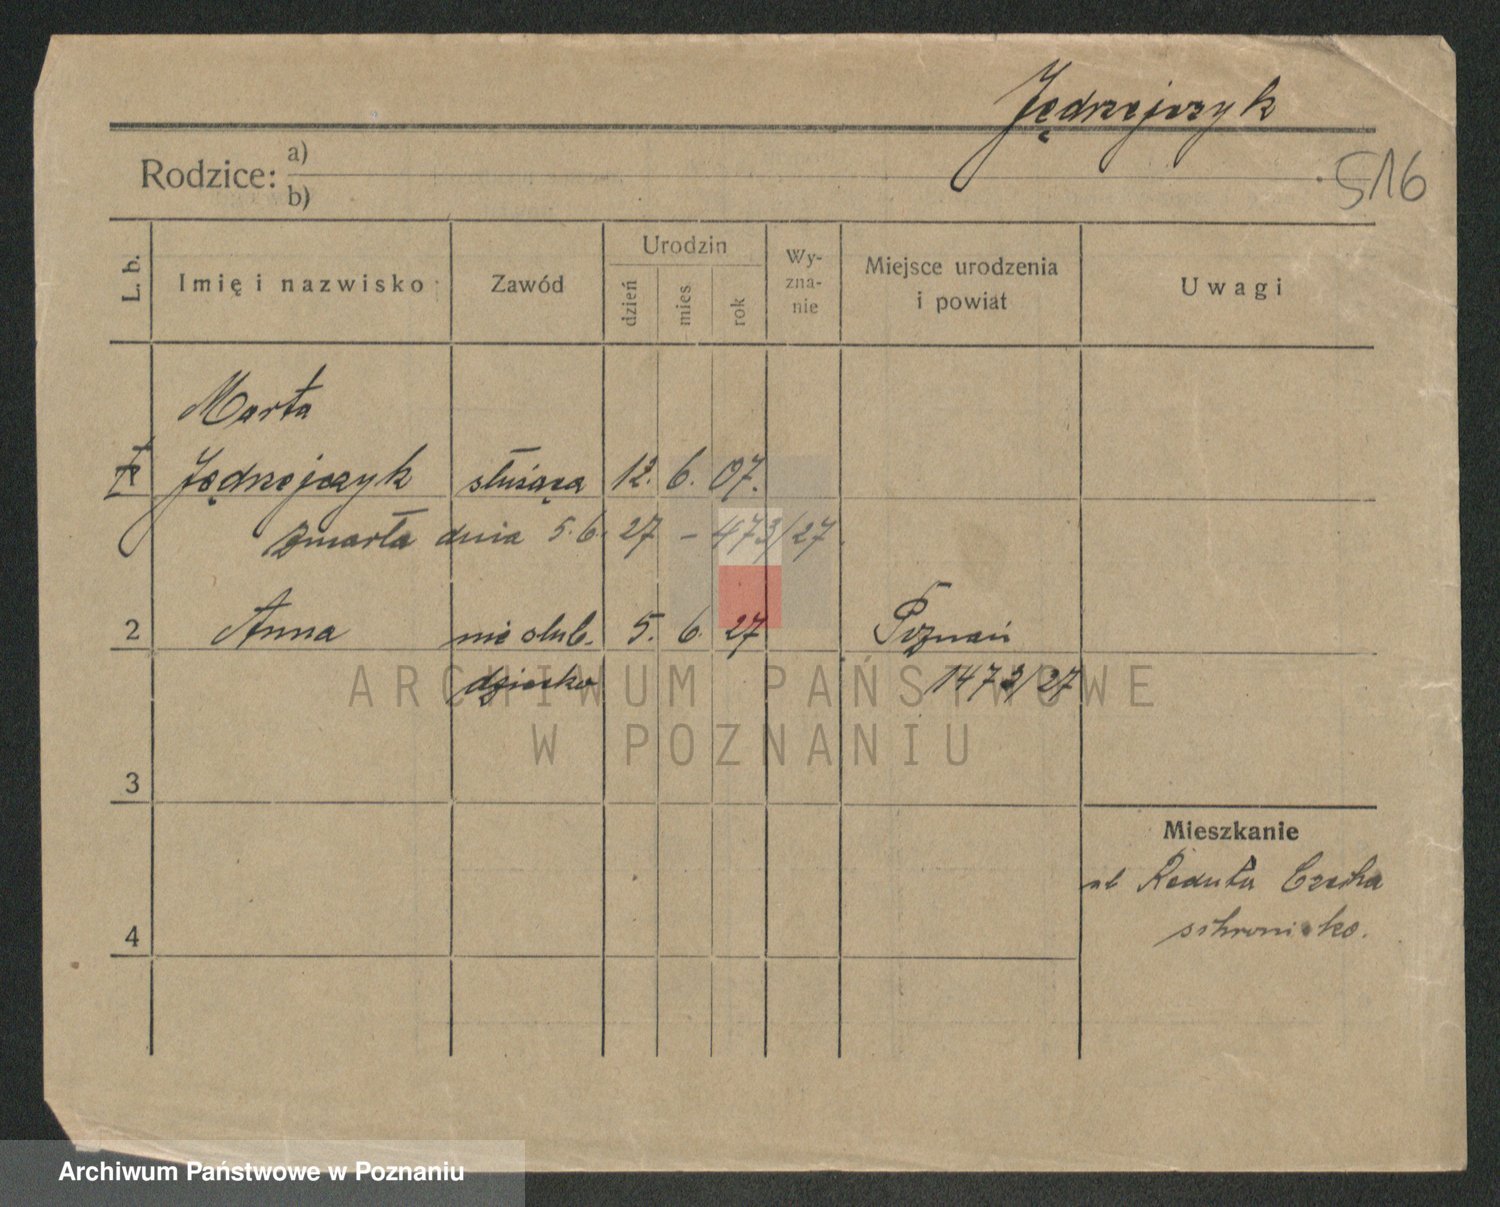 Jędrzejczyk
Rodzice: a)
b)
516
L. b.
Imię i nazwisko
Zawód
Urodzin
dzień
mies
rok
Wy-
zna-
nie
Miejsce urodzenia
i powiat
Uwagi
Marta
Jędrzejczyk służąca 12. 6. 07.
zmarła dnia 5.6. 27 – 473/27.
2 Anna nieślub. 5. 6. 27 Poznań
dziecko 1473/27
ARCHIWUM PAŃSTWOWE
W POZNANIU
3
Mieszkanie
ul Reduta Czecha
schronisko.
4
Archiwum Państwowe w Poznaniu